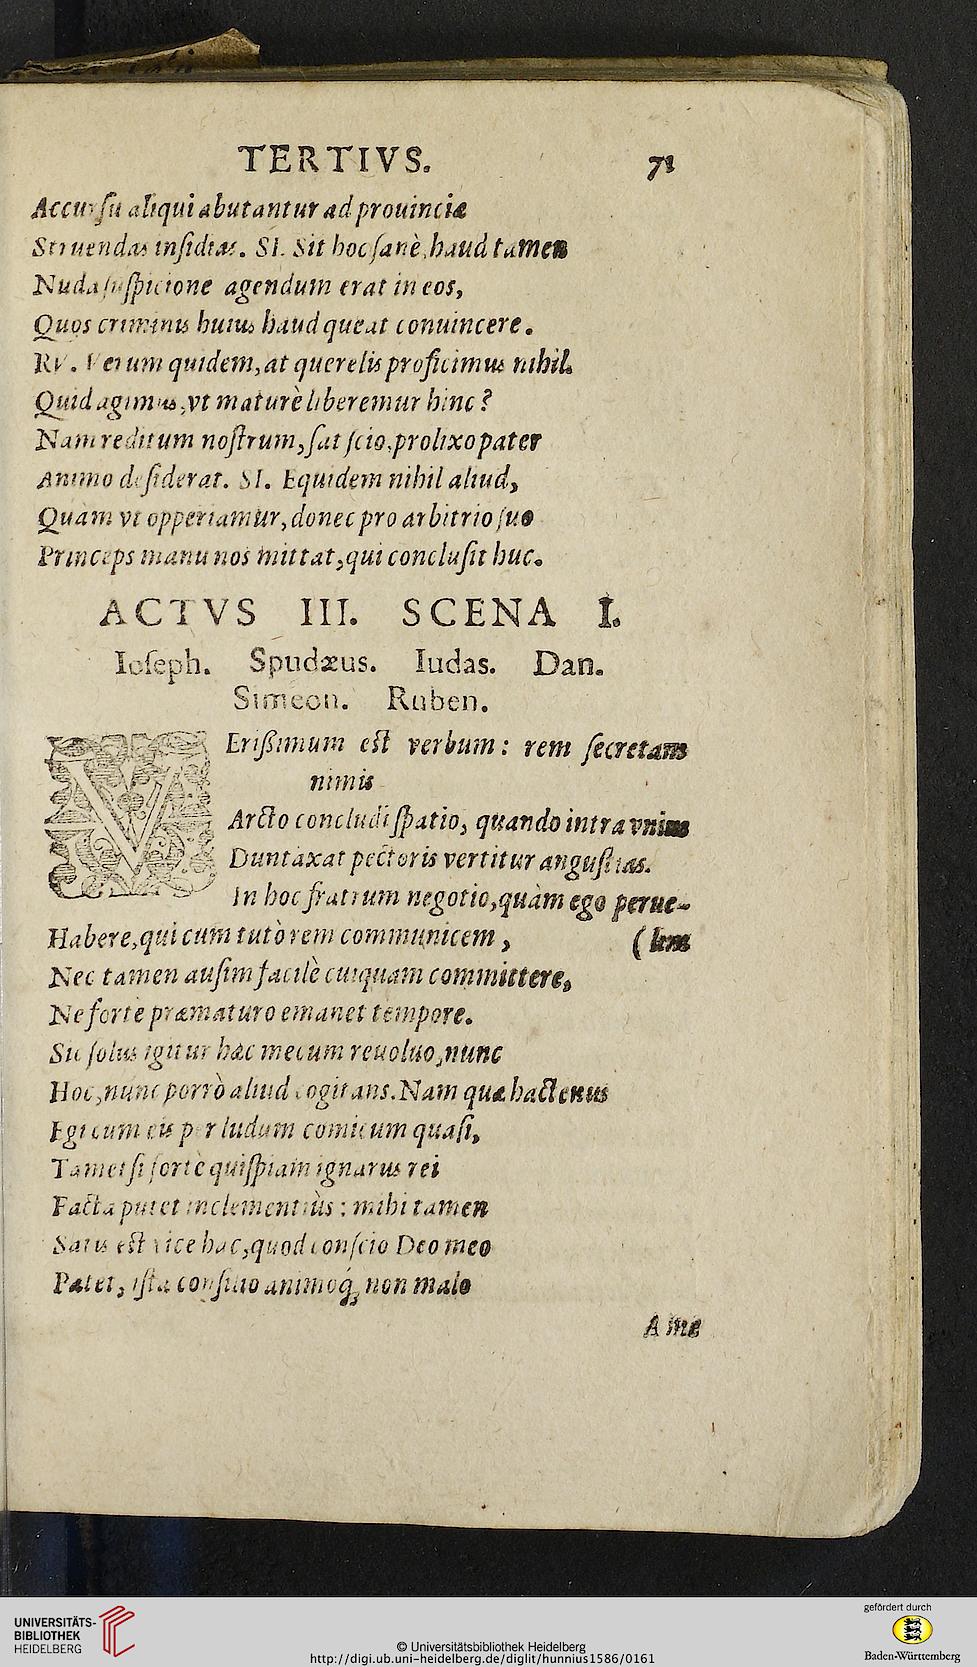 TERTIVS. 71
Accursu aliqui abutantur ad prouinciæ
Struendas insidias. SI. Sit hoc sanè, haud tamen
Nuda suspicione agendum erat in eos,
Quos criminis huius haud queat conuincere.
RV. Verum quidem, at querelis proficimus nihil.
Quid agimus, vt maturè liberemur hinc?
Nam reditum nostrum, sat scio, prolixo pater
Animo desiderat. SI. Equidem nihil aliud,
Quam vt opperiamur, donec pro arbitrio suo
Princeps manu nos mittat, qui conclusit huc.
ACTVS III. SCENA I.
Ioseph. Spudæus. Iudas. Dan.
Simeon. Ruben.
VErißimum est verbum: rem secretam
nimis
Arcto concludi spatio, quando intra vnius
Duntaxat pectoris vertitur angustias.
In hoc fratrum negotio, quàm ego perue-
Habere, qui cum tutò rem communicem, (lim
Nec tamen ausim facilè cuiquam committere,
Ne fortè præmaturo emanet tempore.
Sic solus igitur hæc mecum reuoluo, nunc
Hoc, nunc porrò aliud cogitans. Nam quæ hactenus
Egi cum eis per ludum comicum quasi,
Tametsi fortè quispiam ignarus rei
Facta putet inclementiùs: mihi tamen
Satis est vice hac, quod conscio Deo meo
Patet, ista consilio animoq́; non malo
A me
UNIVERSITÄTS-
BIBLIOTHEK
HEIDELBERG
© Universitätsbibliothek Heidelberg
http://digi.ub.uni-heidelberg.de/diglit/hunnius1586/0161
gefördert durch
Baden-Württemberg